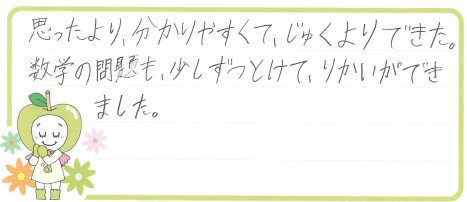 思ったより、分かりやすくて、じゅくよりできた。
数学の問題も、少しずつとけて、りかいができ
ました。